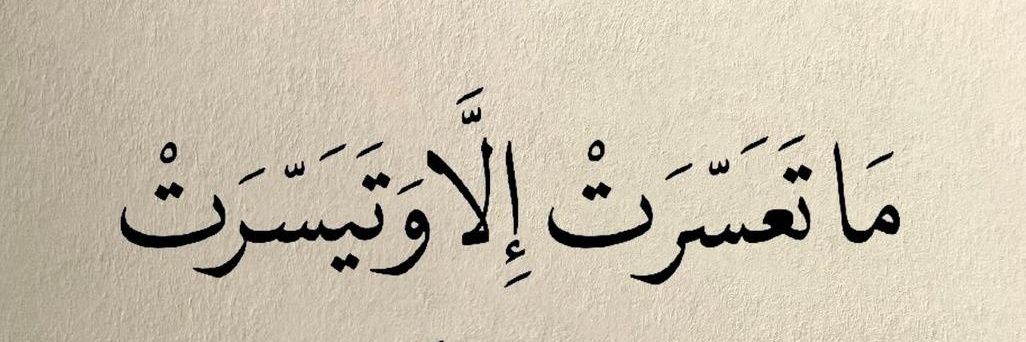 مَا تَعَسَّرَتْ إِلَّا وَتَيَسَّرَتْ